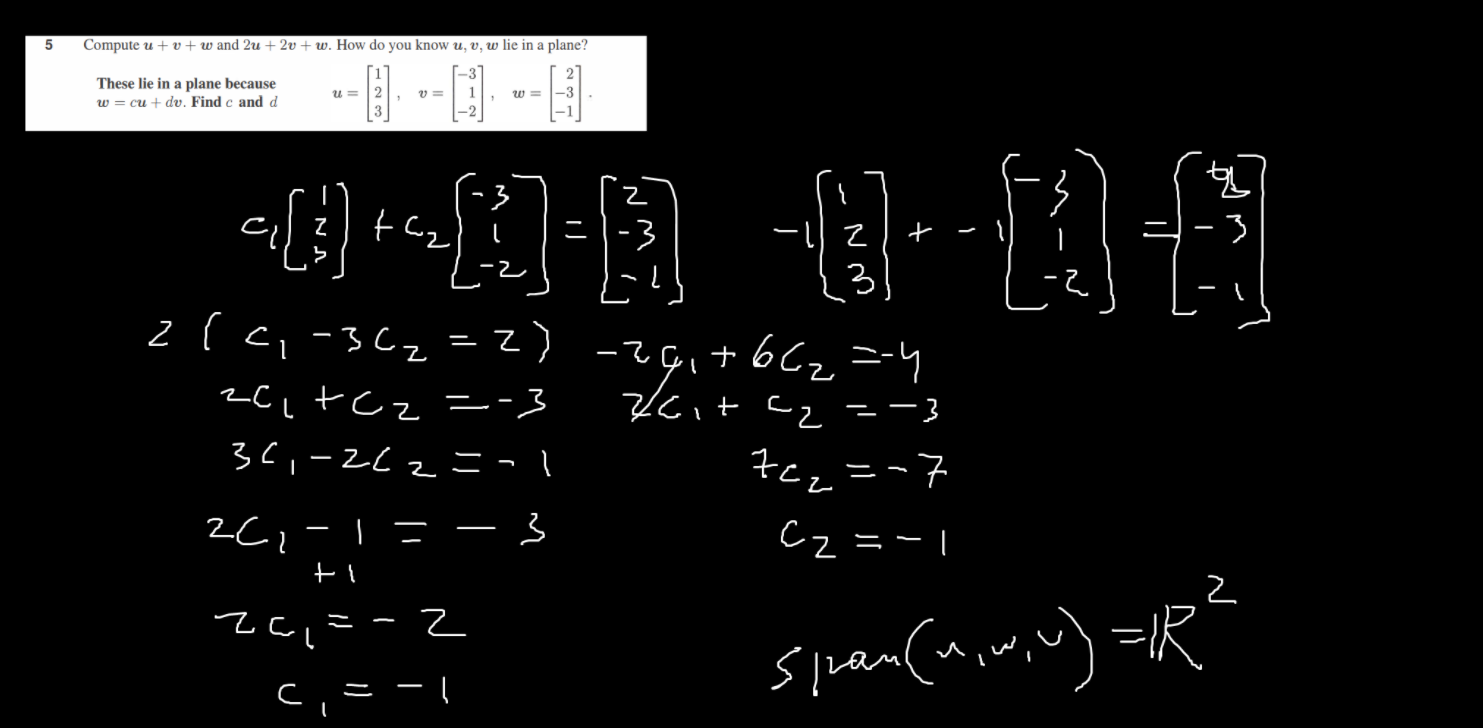 5 Compute u + v + w and 2u + 2v + w. How do you know u, v, w lie in a plane?
These lie in a plane because
w = cu + dv. Find c and d
u = [1 2 3], v = [-3 1 -2], w = [2 -3 -1].
c₁[1 2 3] + c₂[-3 1 -2] = [2 -3 -1]
-1[1 2 3] + -1[-3 1 -2] = [2 -3 -1]
2(c₁ - 3c₂ = 2)
-2c₁ + 6c₂ = -4
2c₁ + c₂ = -3
2c₁ + c₂ = -3
3c₁ - 2c₂ = -1
7c₂ = -7
2c₁ - 1 = -3
c₂ = -1
+1
2c₁ = -2
span(u, w, v) = ℝ²
c₁ = -1